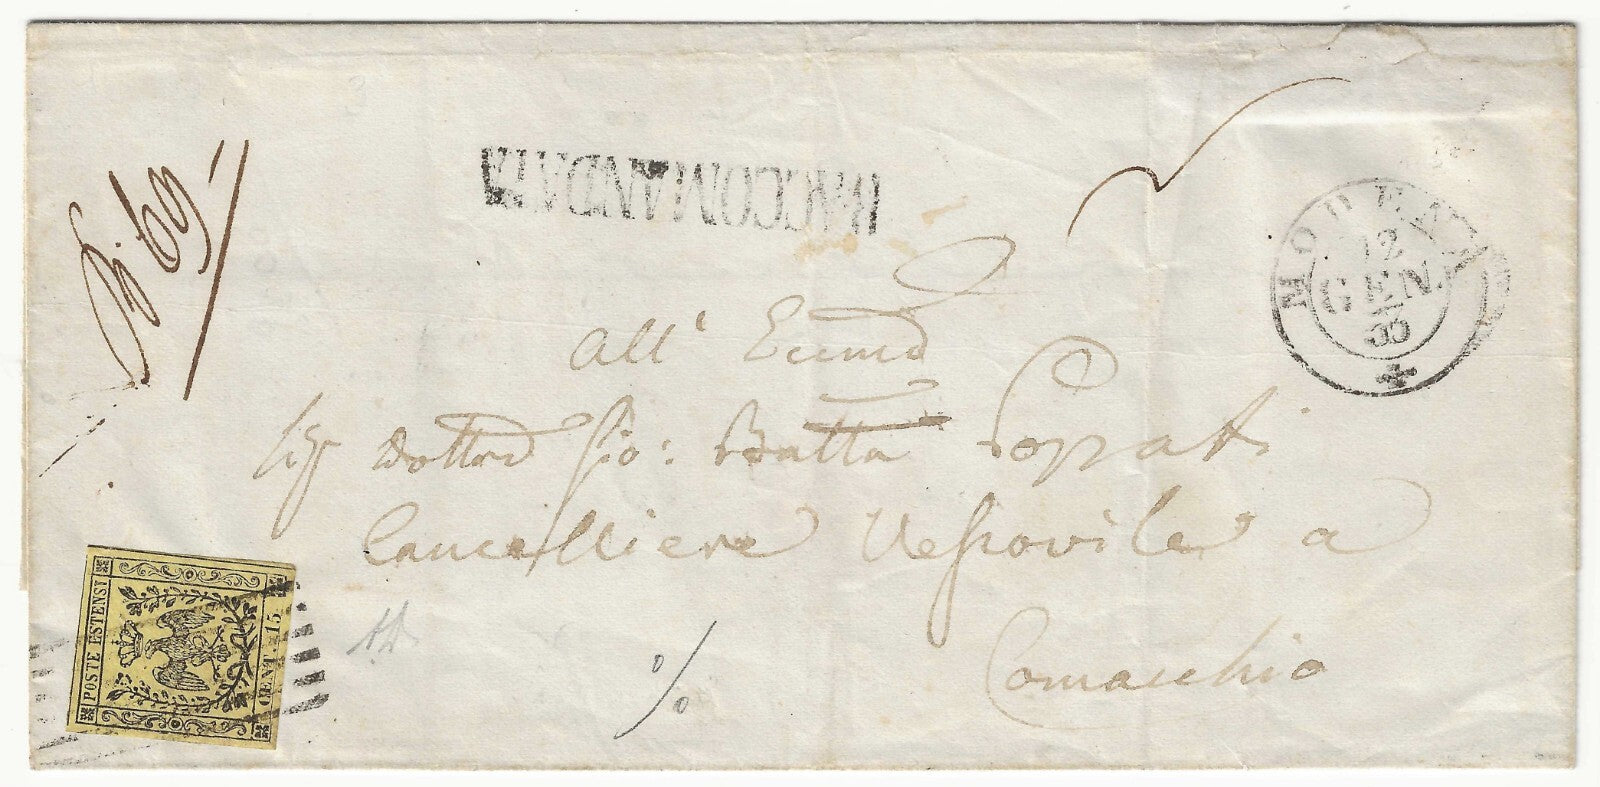 N. 69
RACCOMANDATA
MODENA
12
GEN.
55
All' Eccmo
Sig Dottore Gio: Batta
Cancelliere Vescovile a
Comacchio
POSTE ESTENSI
CENT. 15